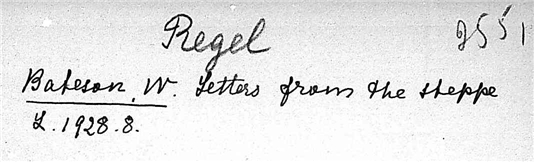 Regel 2551
Bateson, W. Letters from the steppe
L. 1928. 8.